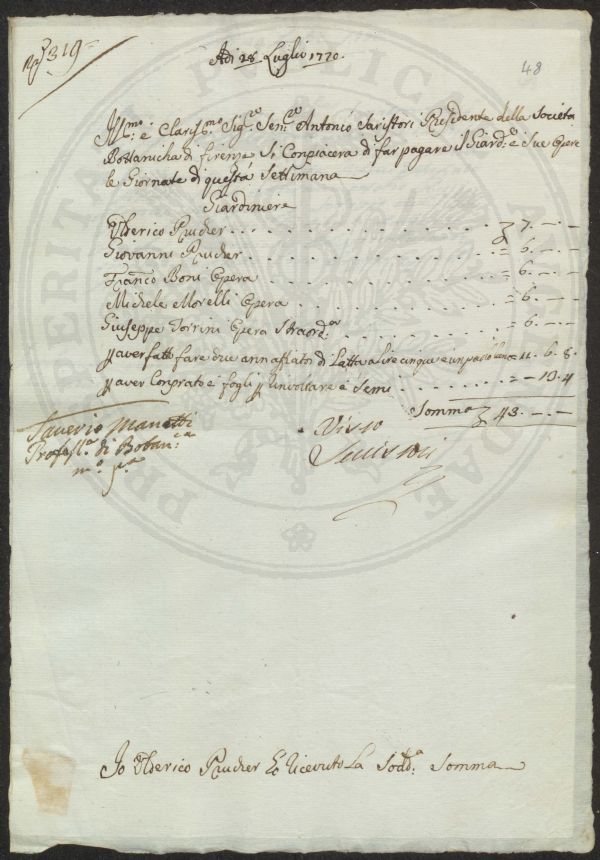 N 319
48
Adi 28 Luglio 1770.
Ill:mo e Claris:mo Sig:re Sen:re Antonio Saristori Presidente della Società
Bottanicha di firenze Si Conpiacera di far pagare il Giard:e e Sue Opere
le Giornate di questa Settimana
Giardiniere
Ulderico Prucker 7. — —
Giovanni Prucker = 6. — —
Franco Boni Opera = 6. — —
Michele Morelli Opera = 6. — —
Giuseppe Torrini Opera Straord:a = 6. — —
p aver fatto fare due annaffiatoi di Latta a Lire cinque e un paolo l'uno = 11. 6. 8
p aver Conprato e fogli p Linvoltare e Semi = — 13. 4
Somma 43. — —
Saverio Manetti
Profess:e di Botan:ca
m:o p:a
Visto
Io Ulderico Prucker ho ricevuto La Sodd:a Somma